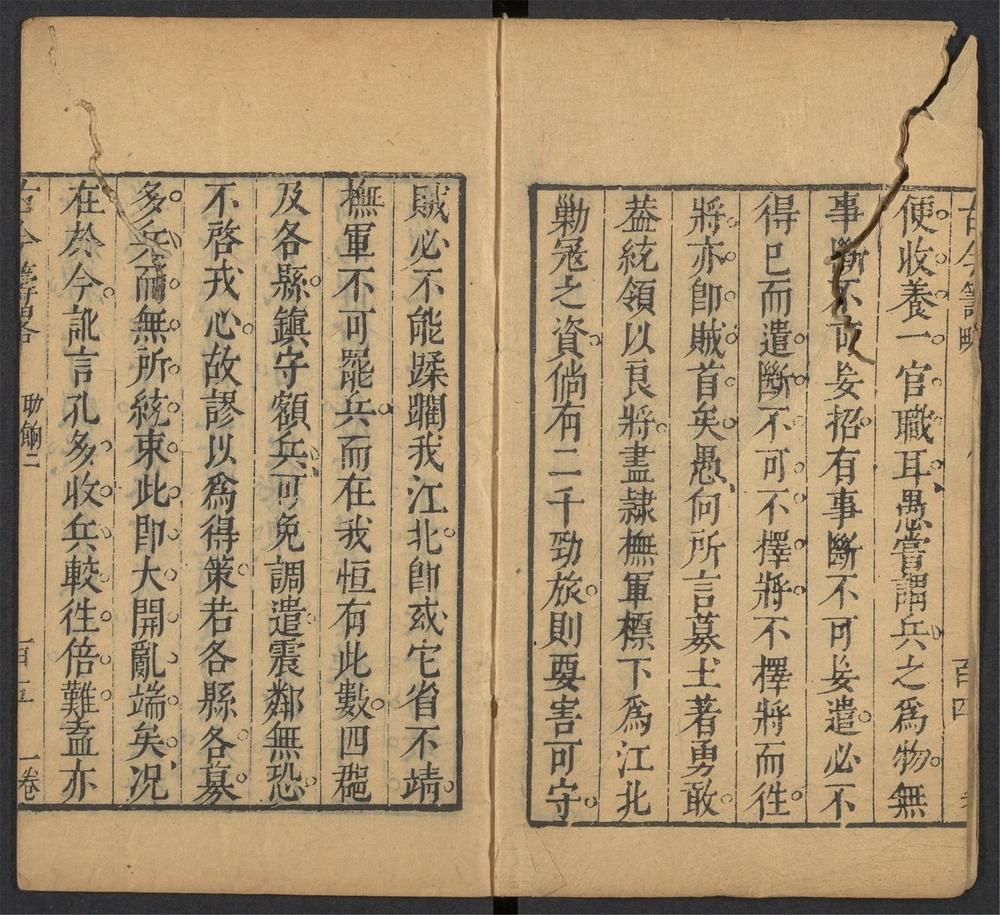 古今籌略 百四
便收養一官職耳愚嘗謂兵之爲物無
事斷不可妄招有事斷不可妄遣必不
得已而遣斷不可不擇將不擇將而徃
將亦卽賊首矣愚向所言募土著勇敢
葢統領以良將盡隸撫軍標下爲江北
勦寇之資倘有二千勁旅則要害可守
賊必不能蹂躙我江北卽或它省不靖
撫軍不可罷兵而在我恒有此數四郡
及各縣鎮守額兵可免調遣震鄰無恐
不啓戎心故謬以爲得策若各縣各募
多兵而無所統束此卽大開亂端矣况
在於今訛言孔多收兵較徃倍難葢亦
古今籌略 助餉二 百五 一卷